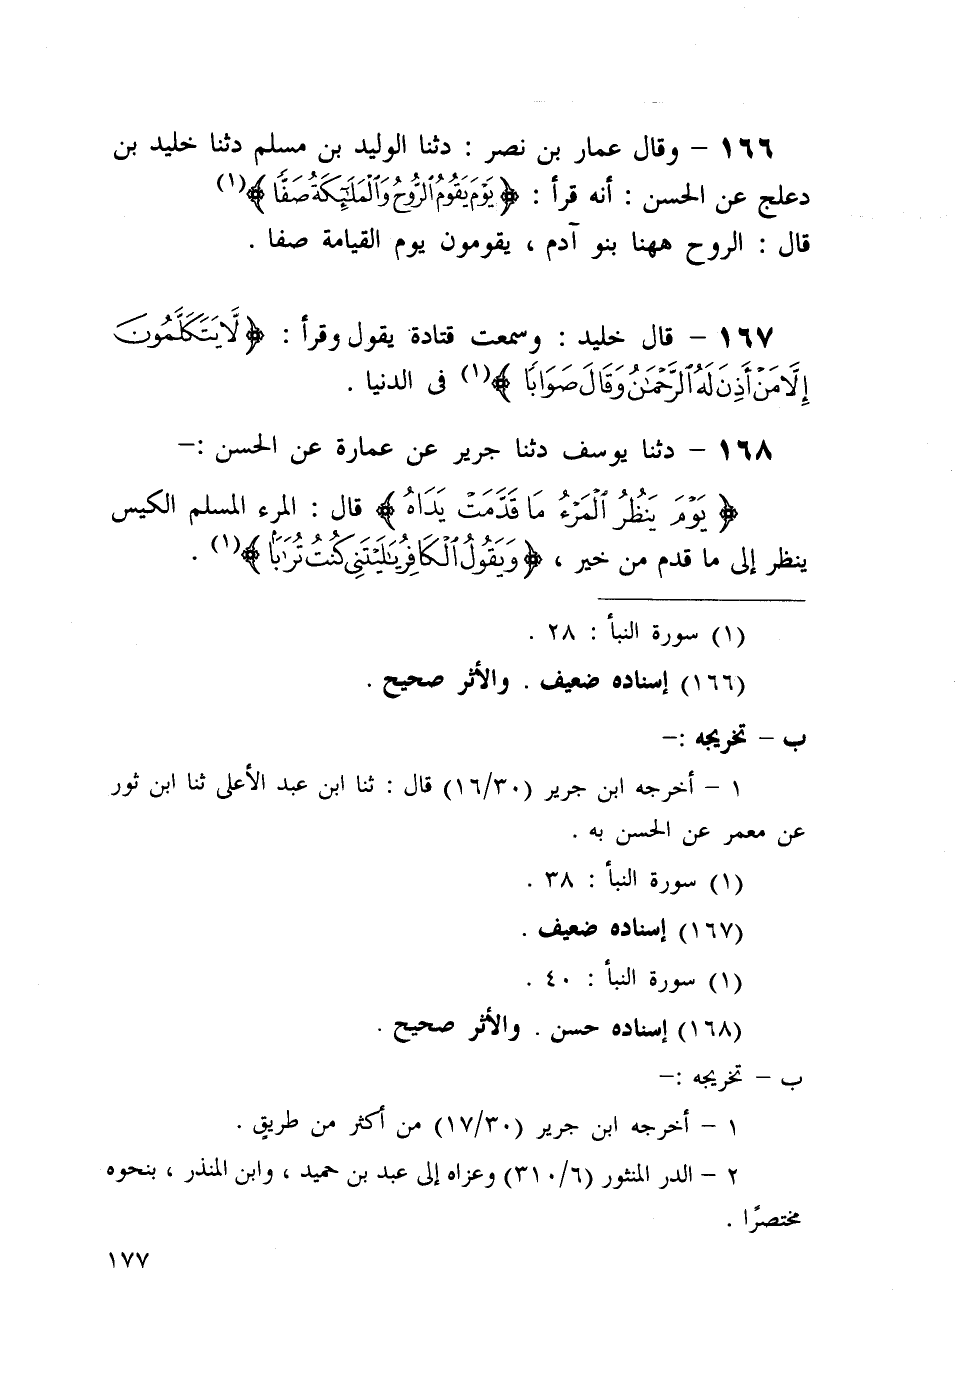 ١٦٦ – وقال عمار بن نصر : دثنا الوليد بن مسلم دثنا خليد بن
دعلج عن الحسن : أنه قرأ : ﴿ يَوْمَ يَقُومُ ٱلرُّوحُ وَٱلْمَلَٰٓئِكَةُ صَفًّا ﴾(١)
قال : الروح ههنا بنو آدم ، يقومون يوم القيامة صفا .
١٦٧ – قال خليد : وسمعت قتادة يقول وقرأ : ﴿ لَّا يَتَكَلَّمُونَ
إِلَّا مَنْ أَذِنَ لَهُ ٱلرَّحْمَٰنُ وَقَالَ صَوَابًا ﴾(١) فى الدنيا .
١٦٨ – دثنا يوسف دثنا جرير عن عمارة عن الحسن :–
﴿ يَوْمَ يَنظُرُ ٱلْمَرْءُ مَا قَدَّمَتْ يَدَاهُ ﴾ قال : المرء المسلم الكيس
ينظر إلى ما قدم من خير ، ﴿ وَيَقُولُ ٱلْكَافِرُ يَٰلَيْتَنِى كُنتُ تُرَٰبًا ﴾(١) .
(١) سورة النبأ : ٢٨ .
(١٦٦) إسناده ضعيف . والأثر صحيح .
ب – تخريجه :–
١ – أخرجه ابن جرير (١٦/٣٠) قال : ثنا ابن عبد الأعلى ثنا ابن ثور
عن معمر عن الحسن به .
(١) سورة النبأ : ٣٨ .
(١٦٧) إسناده ضعيف .
(١) سورة النبأ : ٤٠ .
(١٦٨) إسناده حسن . والأثر صحيح .
ب – تخريجه :–
١ – أخرجه ابن جرير (١٧/٣٠) من أكثر من طريقٍ .
٢ – الدر المنثور (٣١٠/٦) وعزاه إلى عبد بن حميد ، وابن المنذر ، بنحوه
مختصرًا .
١٧٧